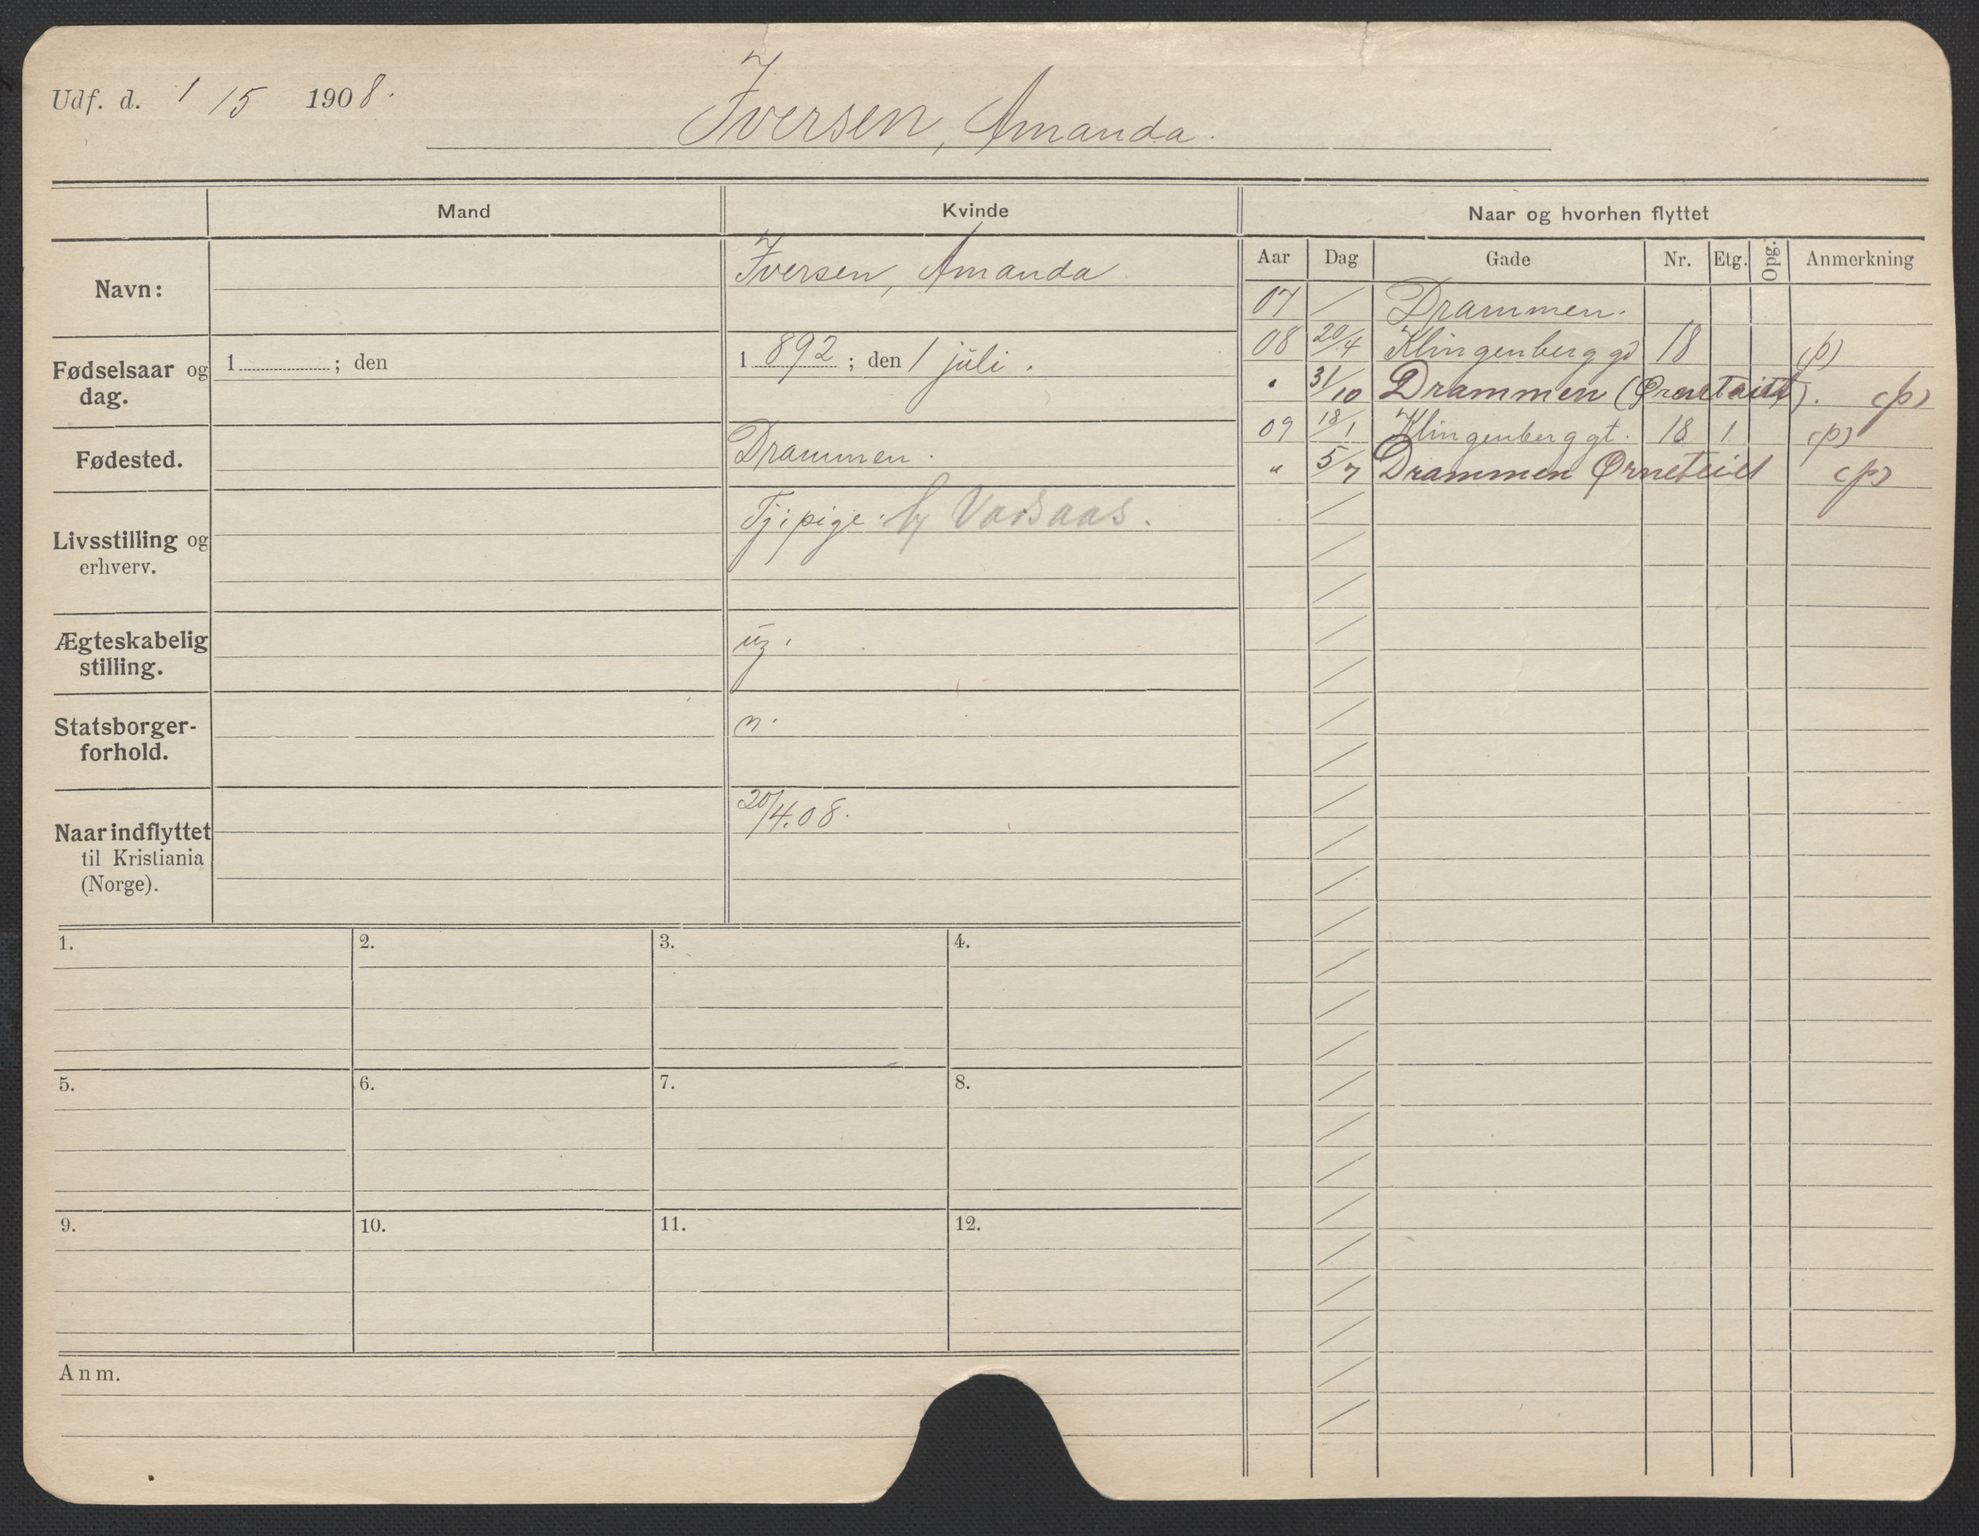 Udf. d. 1/5 1908.
Iversen, Amanda.
Mand
Kvinde
Naar og hvorhen flyttet
Aar Dag Gade Nr. Etg. Opg. Anmerkning
Navn:
Iversen, Amanda.
Fødselsaar og dag.
1 ; den
1892 ; den 1 juli.
Fødested.
Drammen.
Livsstilling og erhverv.
Tj.pige.
Ægteskabelig stilling.
ug.
Statsborger-forhold.
n.
Naar indflyttet til Kristiania (Norge).
20/4.08.
07 / Drammen.
08 20/4 Klingenberg gd 18 (p)
" 31/10 Drammen (p)
09 18/1 Klingenberg gt. 18 1 (p)
" 5/7 Drammen (p)
1. 2. 3. 4.
5. 6. 7. 8.
9. 10. 11. 12.
Anm.